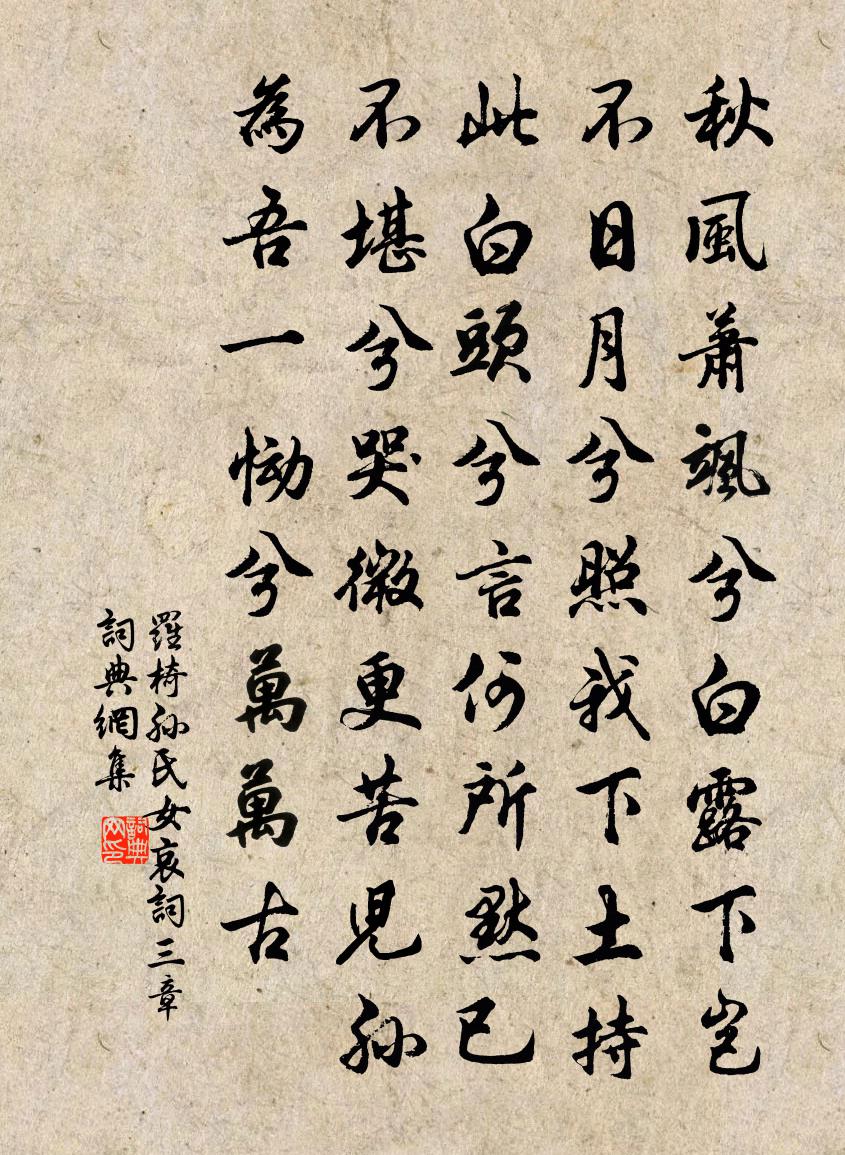 秋風蕭颯兮白露下豈
不日月兮照我下土持
此白頭兮言何所默已
不堪兮哭微更苦兒孫
為吾一慟兮萬萬古
羅椅孫氏女哀詞三章
詞典網集
詞典網印